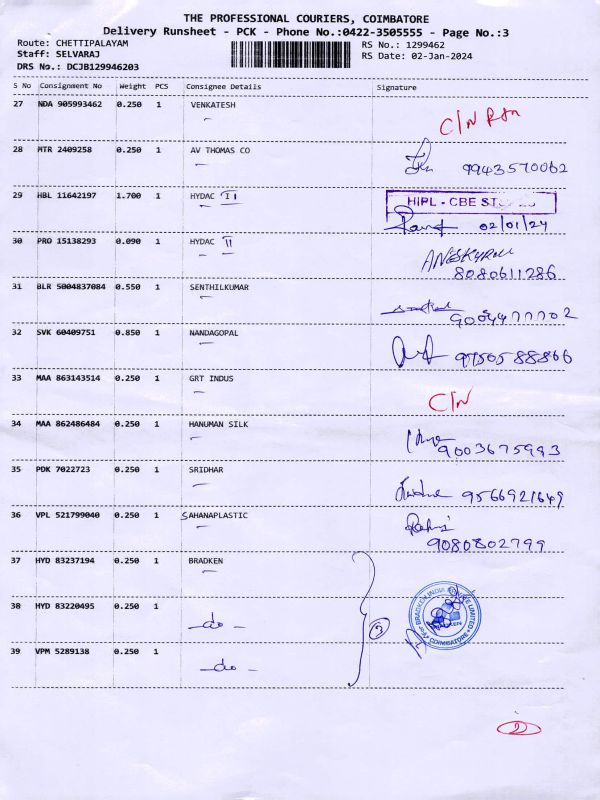 THE PROFESSIONAL COURIERS, COIMBATORE
Delivery Runsheet - PCK - Phone No.:0422-3505555 - Page No.:3
Route: CHETTIPALAYAM RS No.: 1299462
Staff: SELVARAJ RS Date: 02-Jan-2024
DRS No.: DCJB129946203
S No Consignment No Weight PCS Consignee Details Signature
27 NDA 905993462 0.250 1 VENKATESH C/N
28 MTR 2409258 0.250 1 AV THOMAS CO 9943570062
29 HBL 11642197 1.700 1 HYDAC II HIPL - CBE
02/01/24
30 PRO 15138293 0.090 1 HYDAC II
8080611286
31 BLR 5004837084 0.550 1 SENTHILKUMAR
32 SVK 60409751 0.850 1 NANDAGOPAL
33 MAA 863143514 0.250 1 GRT INDUS C/N
34 MAA 862486484 0.250 1 HANUMAN SILK
9003675993
35 PDK 7022723 0.250 1 SRIDHAR 9566921649
36 VPL 521799040 0.250 1 SAHANAPLASTIC
9080802799
37 HYD 83237194 0.250 1 BRADKEN
38 HYD 83220495 0.250 1 - do - BRADKEN INDIA PRIVATE LIMITED COIMBATORE
39 VPM 5289138 0.250 1 - do -